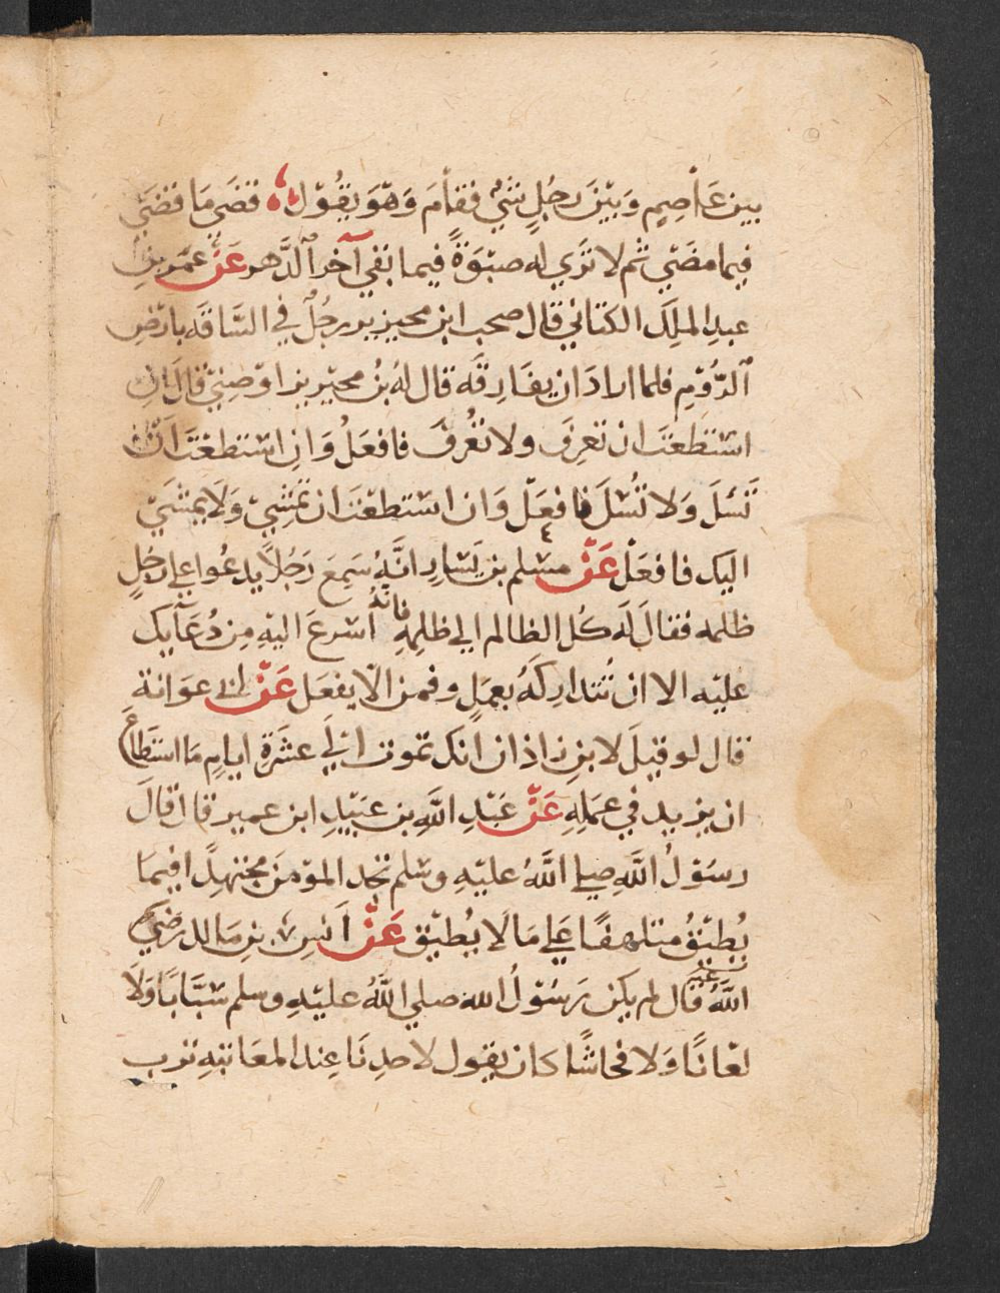 بين عَاصِمٍ وَبَيْنَ رَجُلٍ شَيْءٌ فقاَمَ وَهْوَ يَقُوْل ۞ قضَى مَا قضَىَ
فيما مضَيْ ثم لا تَرَي له صبْوَةً فيما بَقي آخر الدَّهر عَنْ عمَر بنِ
عبدِ الملِكَ الكتانيْ قال صحب ابن محيزيز رجُلٌ في السَّاقَه بارْضِ
الرُّوْمِ فلما ارادَ ان يفَارِقَه قال لهُ بنُ محيْريز اوْصِنِيْ قالَ انِ
اسْتطعتَ ان تعرِفَ ولا تعُرفَ فافعَلْ وَانِ اسْتطعْتَ انْ
تَسْئلَ وَلا تُسْئلَ فافعَلْ وَان اسْتطعْتَ ان تمْشِيْ وَلَا يمْشَيْ
اليك فافعَلْ عَنْ مسْلم بن يَسَارِ انَّهُ سَمِعَ رَجُلاً يدعُوا علي رجُلٍ
ظلمه فقالَ لَه كُل الظالم الي ظلمِهِ فانهُ اسْرعَ اليْهِ مِن دُعَآيك
عليْه الا ان تُتدَارِكَهُ بعمَلٍ وقمن الّا يفعَل عَنْ ابي عوَانة
قال لو قيلَ لابنِ زاذان انك تموت الي عشَرَةِ ايامِ مَا اسْتطاعَ
ان يزيد في عمَلِهِ عَنْ عَبْدِ اللَّهِ بن عبَيْدِ ابن عمير قال قالَ
رسُوْلُ اللَّهِ صلي اللَّهُ عليْهِ وسْلم تجد المؤمنَ مجتهِدًا فيمَا
يُطيْقُ متلهفًا علي مَا لَا يُطيْق عَنْ اَنسِ بنِ مَالك رَضيَ
اللَّهُ عنه قال لم يكن رَسُوْلُ الله صلي اللَّهُ عليْهِ وسلم سَبَّابًا وَلَا
لعَّانًا وَلا فحاشًا كان يقول لاحدِنَا عِند المعَاتبَهِ ترب